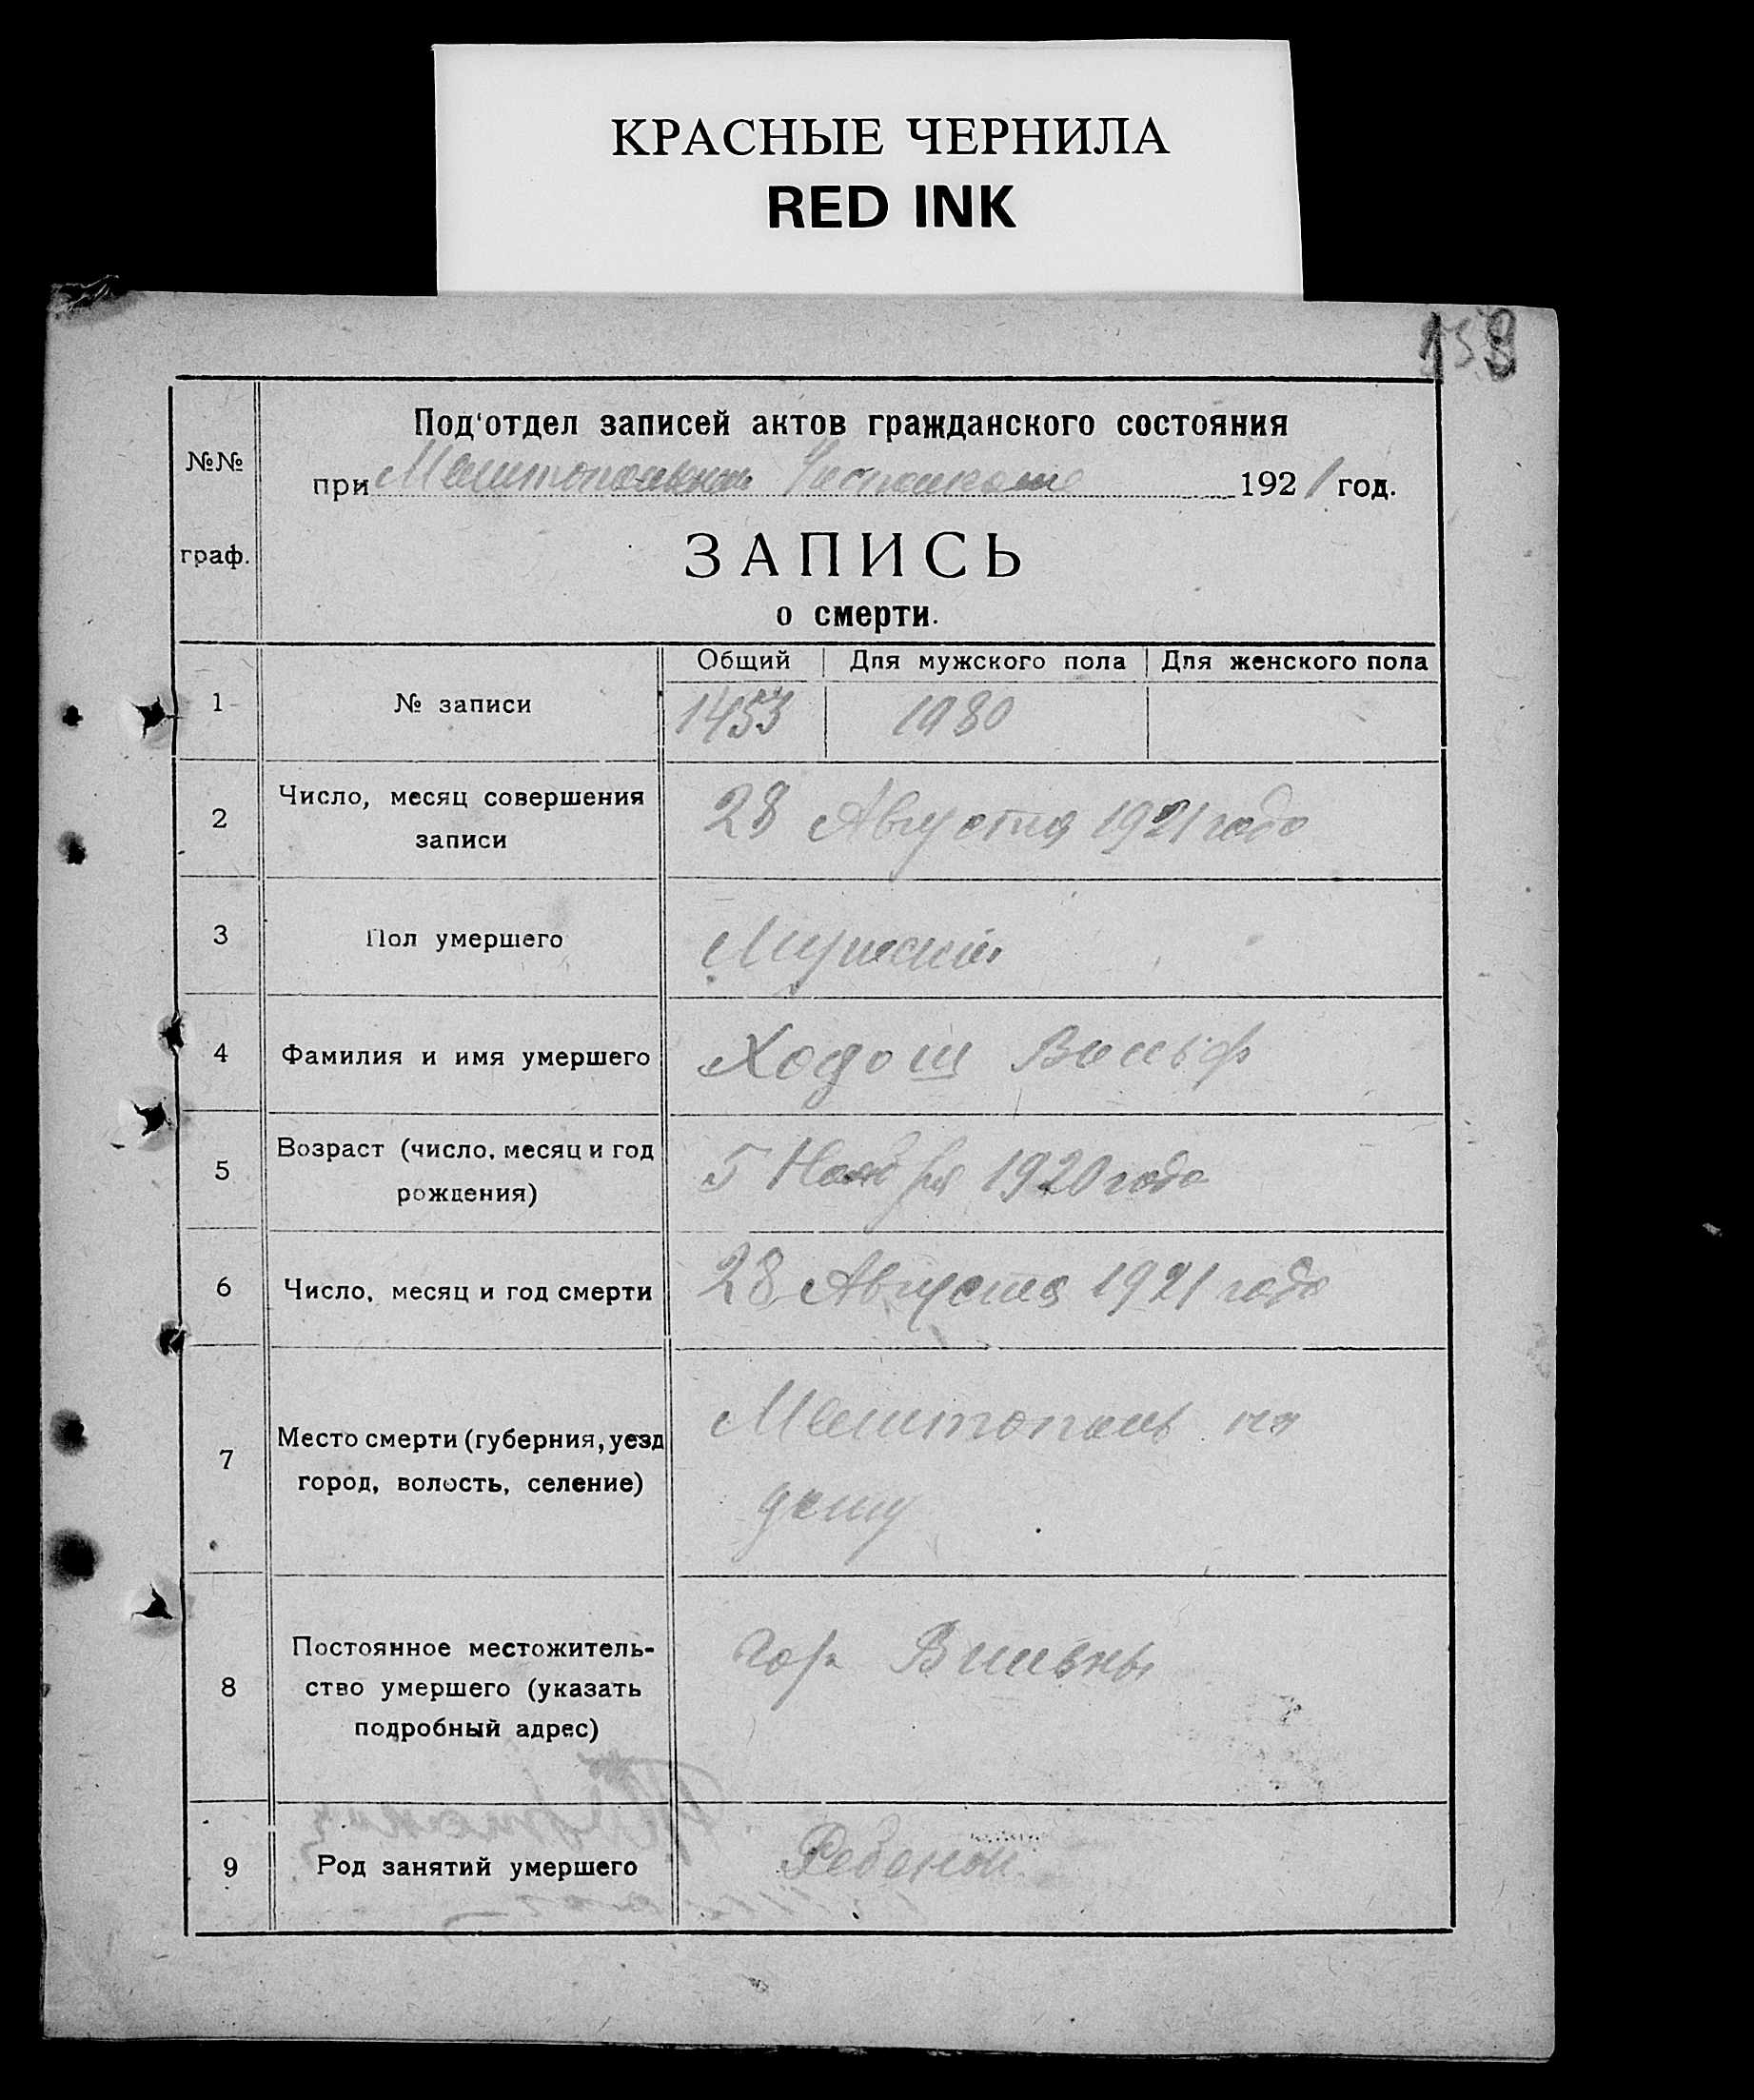 КРАСНЫЕ ЧЕРНИЛА
RED INK
№№
граф.
Под'отдел записей актов гражданского состояния
при Мелитопольском 1921 год.
ЗАПИСЬ
о смерти.
Общий Для мужского пола Для женского пола
1 № записи 1453 1980
2 Число, месяц совершения
записи
28 Августа 1921 года
3 Пол умершего Мужский
4 Фамилия и имя умершего Ходош Вольф
5 Возраст (число, месяц и год
рождения)
5 Ноября 1920 года
6 Число, месяц и год смерти 28 Августа 1921 года
7 Место смерти (губерния, уезд
город, волость, селение)
Мелитополь на
дому
8 Постоянное местожитель-
ство умершего (указать
подробный адрес)
гор. Вильны
9 Род занятий умершего Ребенок